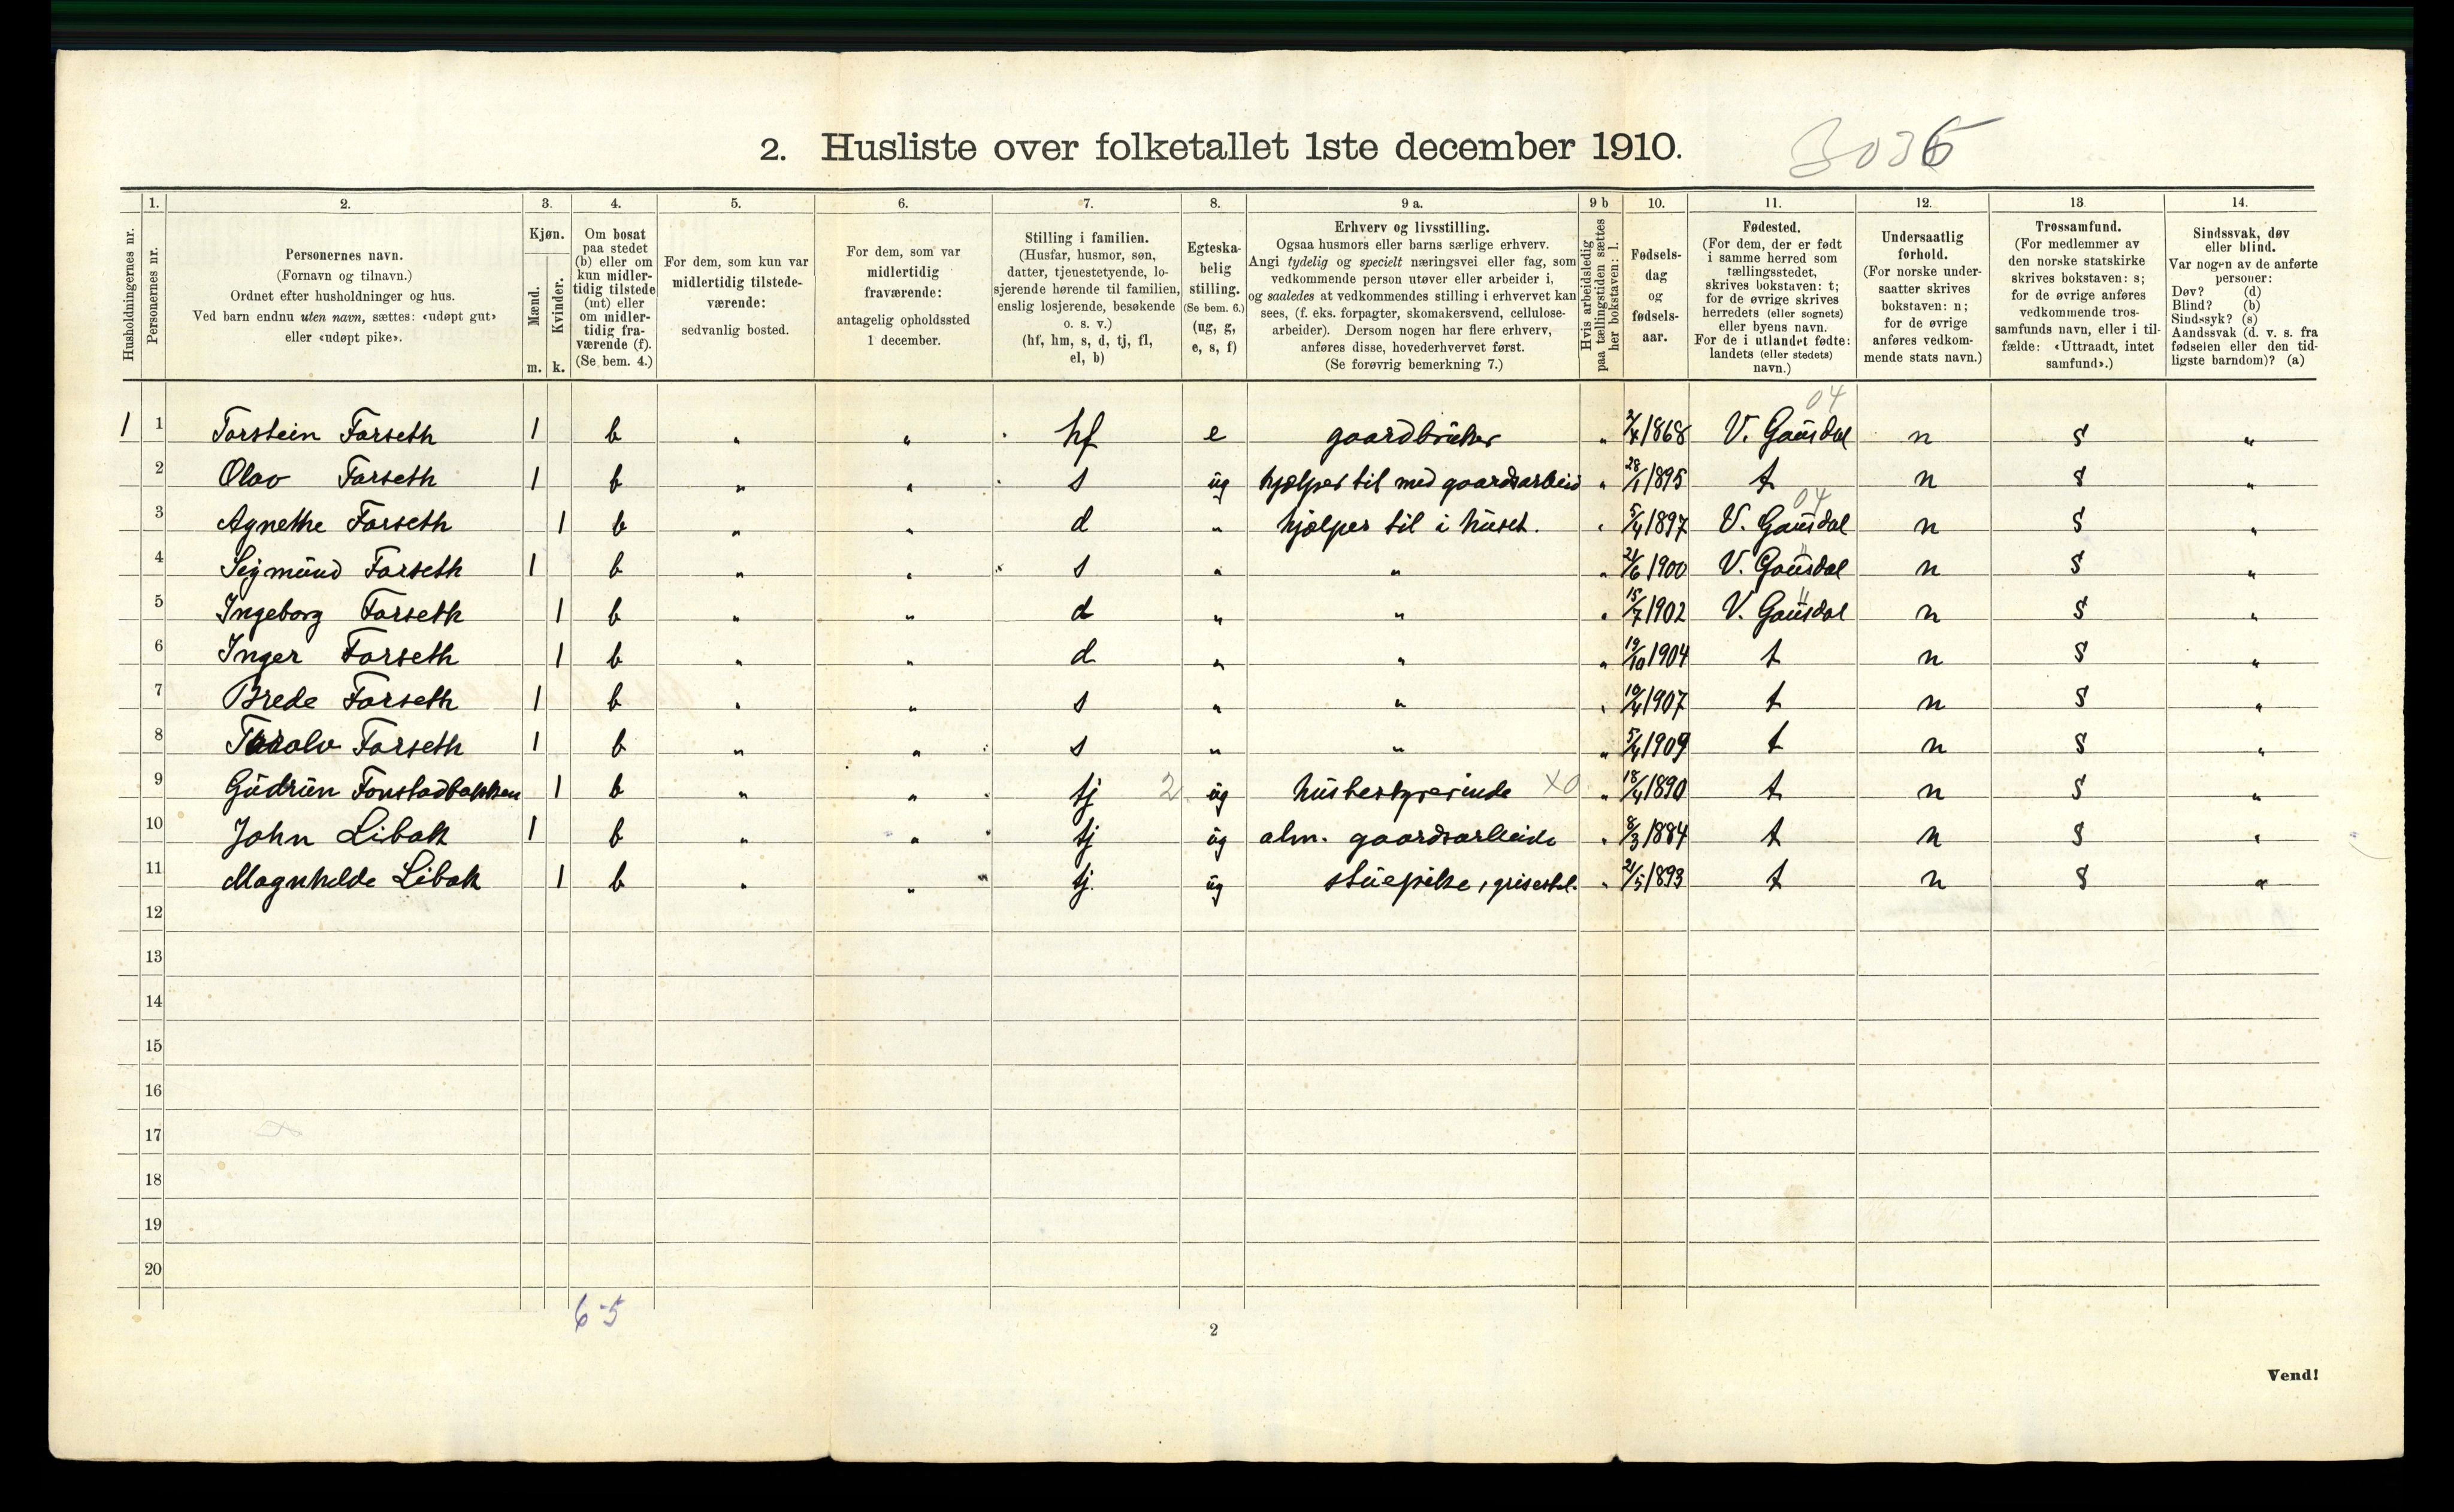 2. Husliste over folketallet 1ste december 1910.
3036
Husholdningernes nr.
1.
Personernes nr.
2.
Personernes navn.
(Fornavn og tilnavn.)
Ordnet efter husholdninger og hus.
Ved barn endnu uten navn, sættes: «udøpt gut»
eller «udøpt pike».
3.
Kjøn.
Mænd.
Kvinder.
m. k.
4.
Om bosat
paa stedet
(b) eller om
kun midler-
tidig tilstede
(mt) eller
om midler-
tidig fra-
værende (f).
(Se bem. 4.)
5.
For dem, som kun var
midlertidig tilstede-
værende:
sedvanlig bosted.
6.
For dem, som var
midlertidig
fraværende:
antagelig opholdssted
1 december.
7.
Stilling i familien.
(Husfar, husmor, søn,
datter, tjenestetyende, lo-
sjerende hørende til familien,
enslig losjerende, besøkende
o. s. v.)
(hf, hm, s, d, tj, fl,
el, b)
8.
Egteska-
belig
stilling.
(Se bem. 6.)
(ug, g,
e, s, f)
9 a.
Erhverv og livsstilling.
Ogsaa husmors eller barns særlige erhverv.
Angi tydelig og specielt næringsvei eller fag, som
vedkommende person utøver eller arbeider i,
og saaledes at vedkommendes stilling i erhvervet kan
sees, (f. eks. forpagter, skomakersvend, cellulose-
arbeider). Dersom nogen har flere erhverv,
anføres disse, hovederhvervet først.
(Se forøvrig bemerkning 7.)
9 b
Hvis arbeidsledig
paa tællingstiden sættes
her bokstaven: l.
10.
Fødsels-
dag
og
fødsels-
aar.
11.
Fødested.
(For dem, der er født
i samme herred som
tællingsstedet,
skrives bokstaven: t;
for de øvrige skrives
herredets (eller sognets)
eller byens navn.
For de i utlandet fødte:
landets (eller stedets)
navn.)
12.
Undersaatlig
forhold.
(For norske under-
saatter skrives
bokstaven: n;
for de øvrige
anføres vedkom-
mende stats navn.)
13
Trossamfund.
(For medlemmer av
den norske statskirke
skrives bokstaven: s;
for de øvrige anføres
vedkommende tros-
samfunds navn, eller i til-
fælde: «Uttraadt, intet
samfund».)
14.
Sindssvak, døv
eller blind.
Var nogen av de anførte
personer:
Døv? (d)
Blind? (b)
Sindssyk? (s)
Aandssvak (d. v. s. fra
fødselen eller den tid-
ligste barndom)? (a)
04
1 1 Torstein Forseth 1 b " " hf e gaardbruker " 2/4 1868 V. Gausdal n s "
2 Olav Forseth 1 b " " s ug hjælper til med gaardsarbeid " 28/1 1895 t n s "
04
3 Agnethe Forseth 1 b " " d " hjælper til i huset. " 5/4 1897 V. Gausdal n s "
4 Sigmund Forseth 1 b " " s " " " 21/6 1900 V. Gausdal n s "
5 Ingeborg Forseth 1 b " " d " " " 15/7 1902 V. Gausdal n s "
6 Inger Forseth 1 b " " d " " " 19/10 1904 t n s "
7 Brede Forseth 1 b " " s " " " 10/4 1907 t n s "
8 Forseth 1 b " " s " " " 5/4 1909 t n s "
9 Gudrun Fonstadbakken 1 b " " tj 2 ug husbestyrerinde X0 " 18/4 1890 t n s "
10 John Libak 1 b " " tj ug alm. gaardsarbeide " 8/3 1884 t n s "
11 Magnhilde Libak 1 b " " tj. ug stuepike, grisestel. " 21/5 1893 t n s "
12
13
14
15
16
17
18
19
20
6-5
2
Vend!